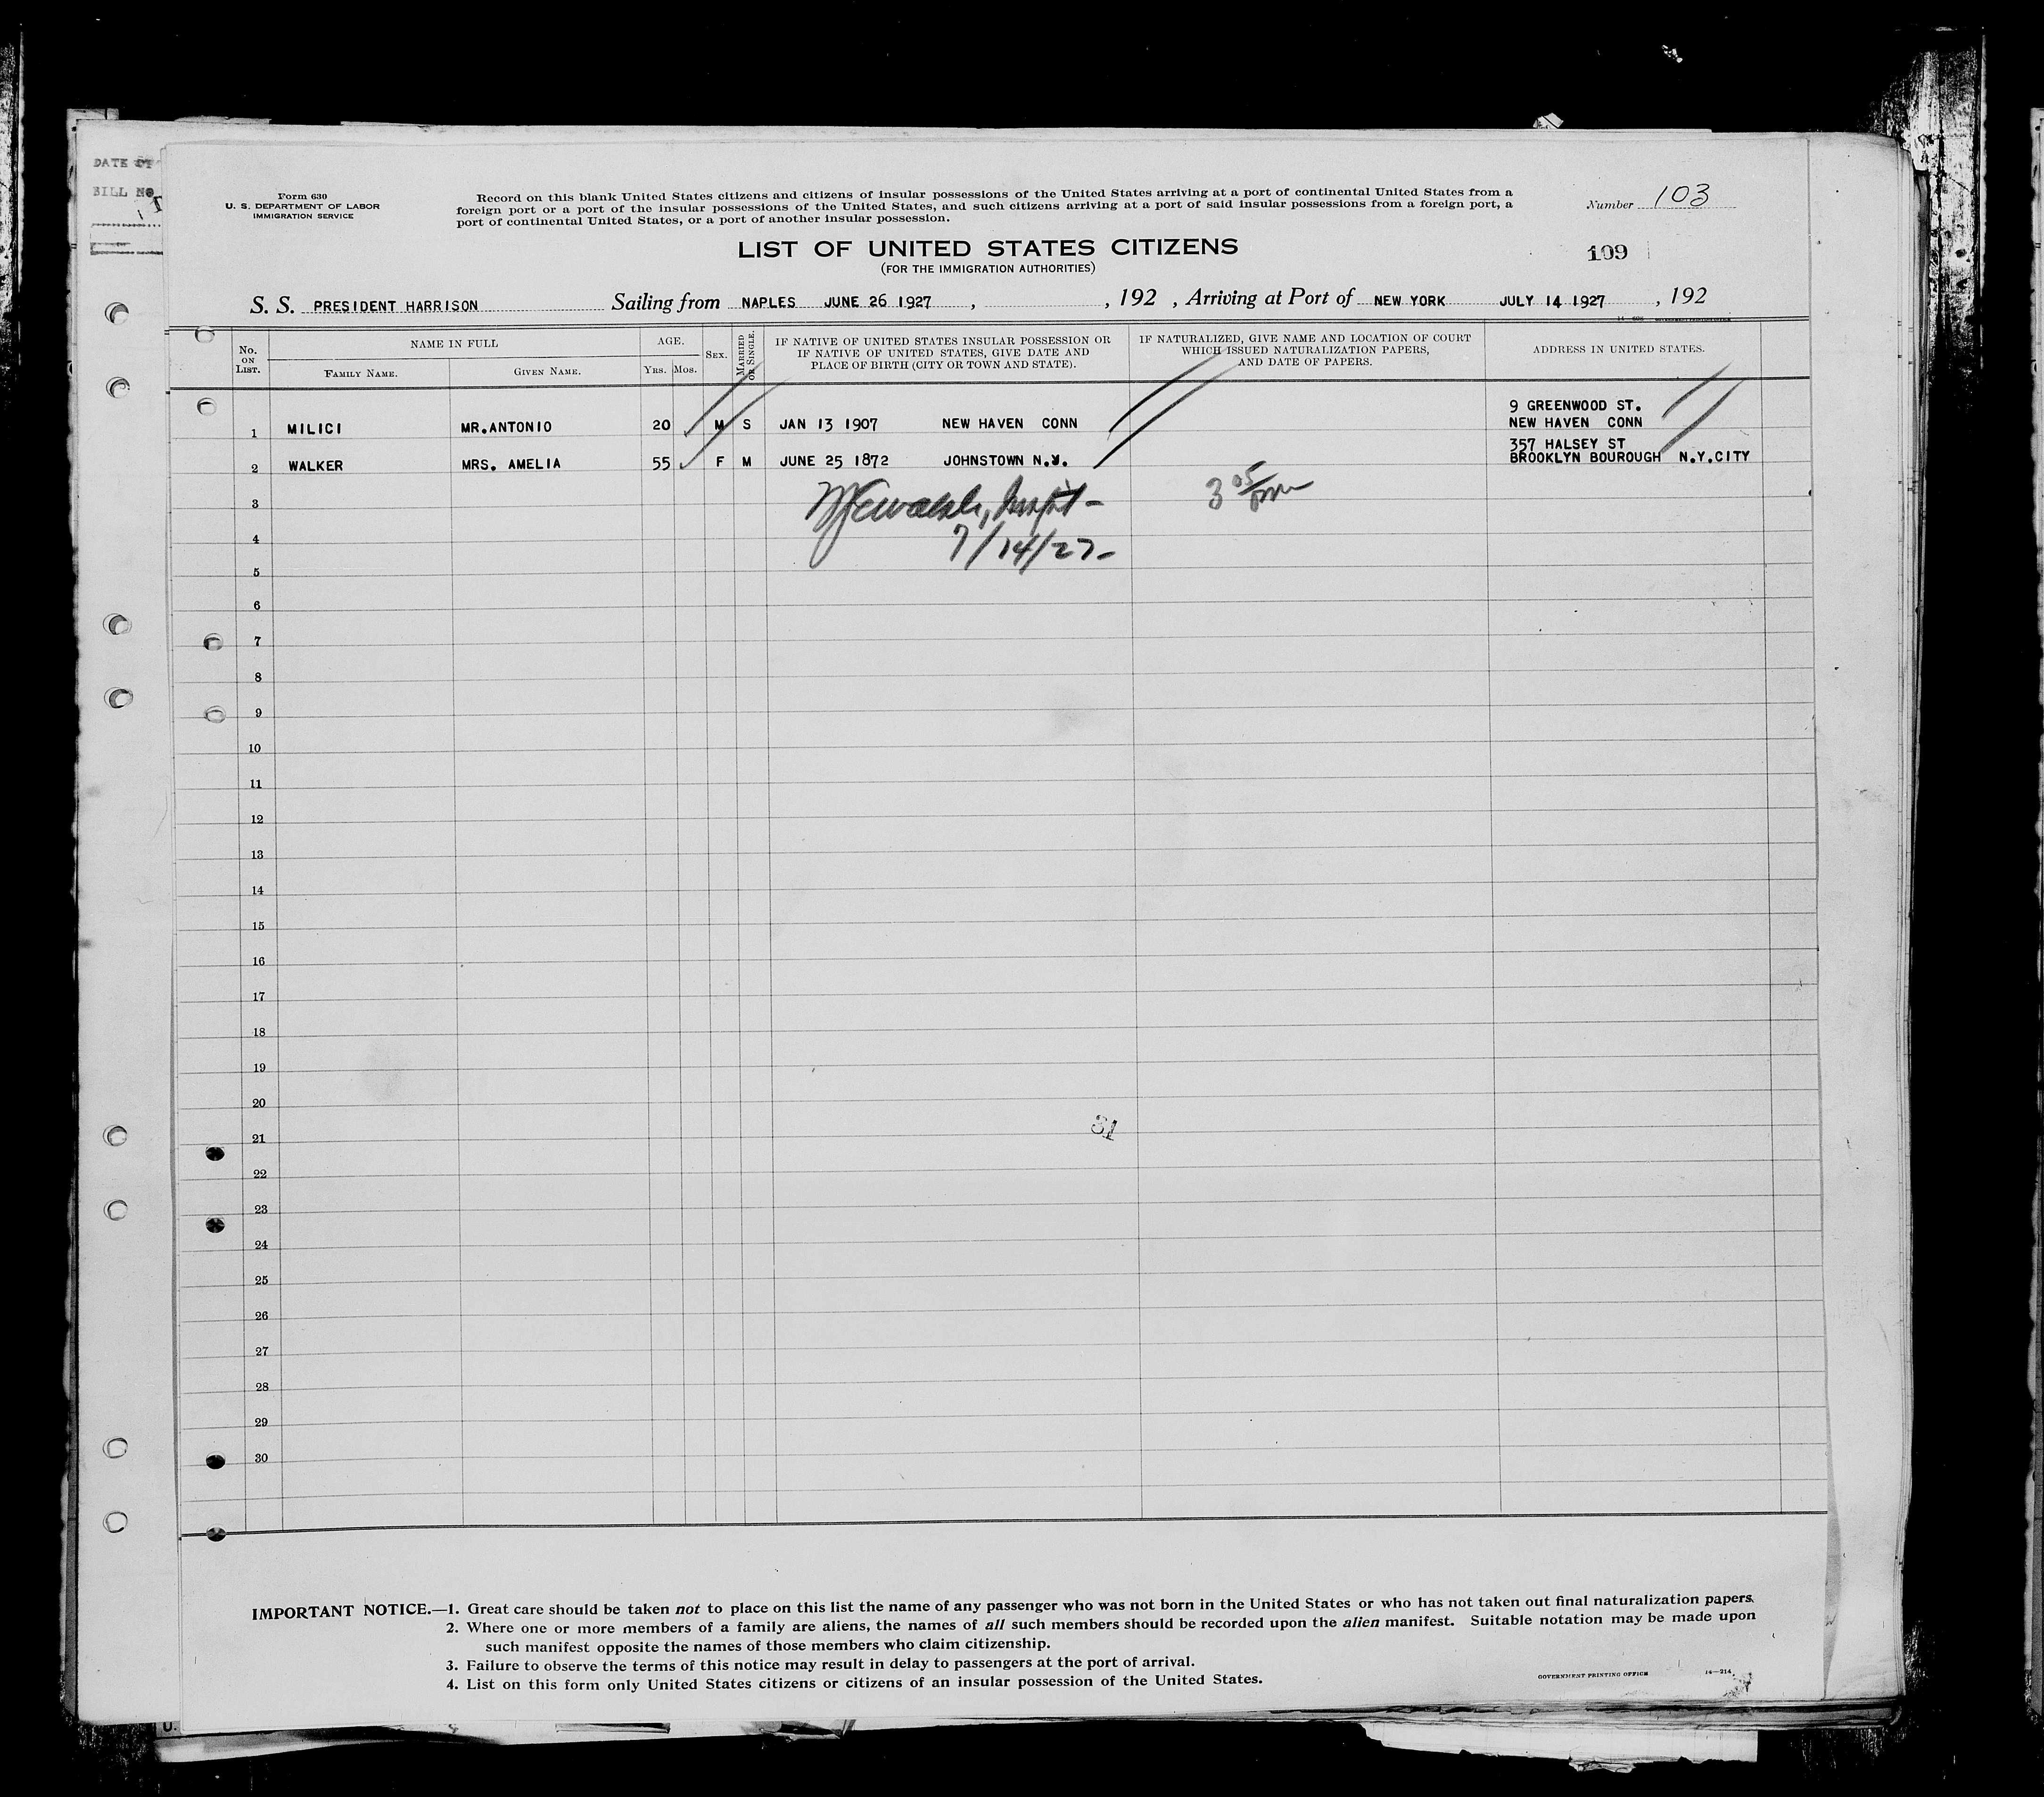 DATE OF
BILL No
Form 630
U. S. DEPARTMENT OF LABOR
IMMIGRATION SERVICE
Record on this blank United States citizens and citizens of insular possessions of the United States arriving at a port of continental United States from a
foreign port or a port of the insular possessions of the United States, and such citizens arriving at a port of said insular possessions from a foreign port, a
port of continental United States, or a port of another insular possession.
Number 103
LIST OF UNITED STATES CITIZENS
(FOR THE IMMIGRATION AUTHORITIES)
109
S. S. PRESIDENT HARRISON Sailing from NAPLES JUNE 26 1927 , , 192 , Arriving at Port of NEW YORK JULY 14 1927 , 192
No. ON LIST.
NAME IN FULL
FAMILY NAME. GIVEN NAME.
AGE.
YRS. MOS.
SEX.
MARRIED OR SINGLE.
IF NATIVE OF UNITED STATES INSULAR POSSESSION OR
IF NATIVE OF UNITED STATES, GIVE DATE AND
PLACE OF BIRTH (CITY OR TOWN AND STATE).
IF NATURALIZED, GIVE NAME AND LOCATION OF COURT
WHICH ISSUED NATURALIZATION PAPERS,
AND DATE OF PAPERS.
ADDRESS IN UNITED STATES.
9 GREENWOOD ST.
1 MILICI MR.ANTONIO 20 M S JAN 13 1907 NEW HAVEN CONN NEW HAVEN CONN
357 HALSEY ST
2 WALKER MRS. AMELIA 55 F M JUNE 25 1872 JOHNSTOWN N.Y. BROOKLYN BOUROUGH N.Y.CITY
3 3 05 pm
4 7/14/27-
5
6
7
8
9
10
11
12
13
14
15
16
17
18
19
20
31
21
22
23
24
25
26
27
28
29
30
IMPORTANT NOTICE.—1. Great care should be taken not to place on this list the name of any passenger who was not born in the United States or who has not taken out final naturalization papers.
2. Where one or more members of a family are aliens, the names of all such members should be recorded upon the alien manifest. Suitable notation may be made upon
such manifest opposite the names of those members who claim citizenship.
3. Failure to observe the terms of this notice may result in delay to passengers at the port of arrival.
4. List on this form only United States citizens or citizens of an insular possession of the United States.
GOVERNMENT PRINTING OFFICE 14—214
U.